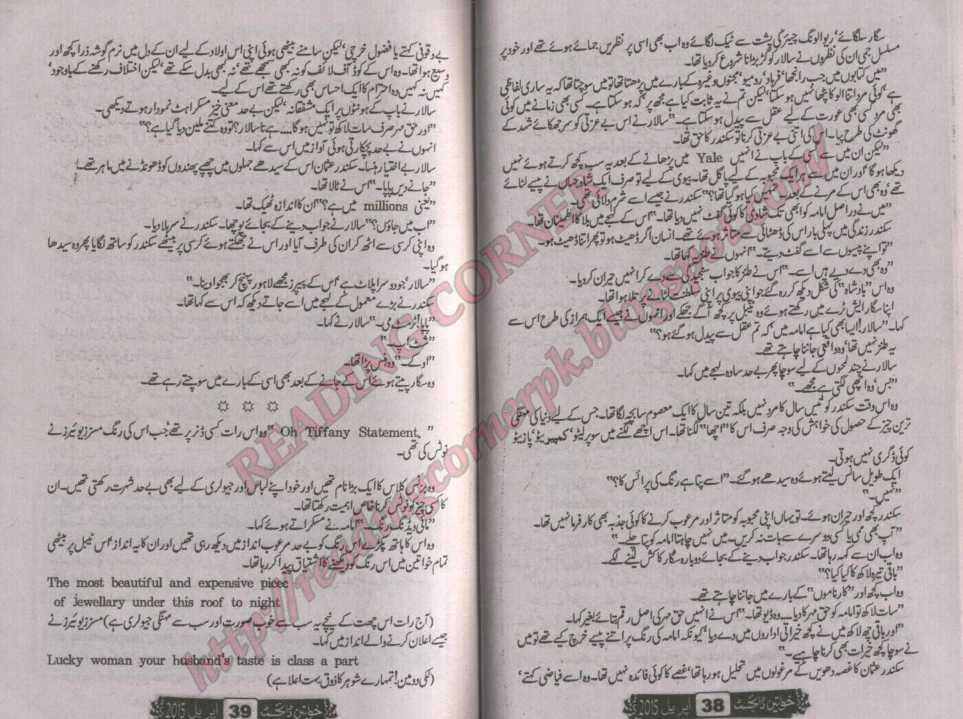 سگار سلگائے، ریوالونگ چیئر کی پشت سے ٹیک لگائے وہ اب بھی اسی پر نظریں جمائے ہوئے تھے اور خود پر
مسلسل جمی ان کی نظروں نے سالار کو گڑبڑانا شروع کر دیا تھا۔
"میں کتابوں میں جب رانجھا، فرہاد، رومیو، مجنوں وغیرہ کے بارے میں پڑھتا تھا تو میں سوچتا تھا کہ یہ ساری لفاظی
ہے، کوئی مرد اتنا الو کا پٹھا نہیں ہو سکتا، لیکن تم نے یہ ثابت کیا ہے مجھ پر کہ ہو سکتا ہے۔ کسی بھی زمانے میں کوئی
بھی مرد کسی بھی عورت کے لیے عقل سے پیدل ہو سکتا ہے۔" سالار نے اس بے عزتی کو سر جھکائے شہد کے
گھونٹ کی طرح پیا۔ اس کی اتنی بے عزتی کرنا تو سکندر کا حق تھا۔
"لیکن ان میں سے کسی کے باپ نے انہیں Yale میں پڑھانے کے بعد یہ سب کچھ کرتے ہوئے نہیں
دیکھا ہو گا، اور ان میں سے ہر ایک محبوبہ کے لیے پاگل تھا۔ بیوی کے لیے تو صرف ایک شاہ جہاں نے پیسے لٹائے
تھے، وہ بھی اس کے مرنے کے بعد۔ تمہیں کیا ہو گیا تھا؟" سکندر نے جیسے اسے شرم دلائی تھی۔
"میں نے دراصل امامہ کو ابھی تک شادی کا کوئی گفٹ نہیں دیا تھا۔" اس کے لہجے میں بلا کا اطمینان تھا۔
سکندر زندگی میں پہلی بار اس کی ڈھٹائی سے متاثر ہوئے تھے۔ انسان اگر ڈھیٹ ہو تو پھر اتنا ڈھیٹ ہو۔
"تو اپنے پیسوں سے اسے گفٹ دیتے۔" انہوں نے طنزیہ کہا تھا۔
"وہ بھی دے دیے ہیں اسے۔" اس نے طنز کا جواب سنجیدگی سے دے کر انہیں حیران کر دیا۔
وہ اس "بادشاہ" کی شکل دیکھ کر رہ گئے جو اپنی بیوی پر اپنی سلطنت لٹانے پر تلا ہوا تھا۔
اپنا سگار ایش ٹرے میں رکھتے ہوئے وہ ٹیبل پر کچھ آگے جھکے اور انہوں نے جیسے ایک ہمراز کی طرح اس سے
کہا۔ "سالار! ایسا بھی کیا ہے امامہ میں کہ تم عقل سے پیدل ہو گئے ہو؟"
یہ طنز نہیں تھا، وہ واقعی جاننا چاہتے تھے۔
سالار نے چند لمحوں کے لیے سوچا پھر بے حد سادہ لہجے میں کہا۔
"بس، وہ اچھی لگتی ہے مجھے۔"
وہ اس وقت سکندر کو تیس سال کا مرد نہیں بلکہ تین سال کا ایک معصوم سا بچہ لگا تھا۔ جس کے لیے دنیا کی مہنگی
ترین چیز کے حصول کی خواہش کی وجہ صرف اس کا "اچھا" لگنا تھا۔ اس اچھے لگنے میں سوپرلیٹو، کمپیریٹو، پازیٹو
کوئی ڈگری نہیں ہوتی۔
ایک طویل سانس لیتے ہوئے وہ سیدھے ہو گئے۔ "اسے پتا ہے رنگ کی پرائس کا؟"
"نہیں۔"
سکندر کچھ اور حیران ہوئے۔ تو یہاں اپنی محبوبہ کو متاثر اور مرعوب کرنے کا کوئی جذبہ بھی کار فرما نہیں تھا۔
"آپ بھی ممی یا کسی دوسرے سے بات نہ کریں۔ میں نہیں چاہتا امامہ کو پتا چلے۔"
وہ اب ان سے کہہ رہا تھا۔ سکندر جواب دینے کے بجائے دوبارہ سگار کا کش لینے لگے۔
"باقی تیرہ لاکھ کا کیا کیا؟"
وہ اب کچھ اور "کارناموں" کے بارے میں جاننا چاہتے تھے۔
"سات لاکھ تو امامہ کو حق مہر کا دیا۔ وہ ڈیو تھا۔" اس نے انہیں حق مہر کی اصل رقم بتائے بغیر کہا۔
"اور باقی چھ لاکھ میں نے کچھ خیراتی اداروں میں دے دیا، کیونکہ امامہ کی رنگ پر اتنے پیسے خرچ کیے تھے تو میں
نے سوچا کچھ خیرات بھی کرنا چاہیے۔"
سکندر عثمان کا غصہ دھویں کے مرغولوں میں تحلیل ہو رہا تھا، غصے کا کوئی فائدہ نہیں تھا۔ وہ اسے فیاضی کہتے،
خواتین ڈائجسٹ 38 اپریل 2015
بے وقوفی کہتے یا فضول خرچی، لیکن سامنے بیٹھی ہوئی اپنی اس اولاد کے لیے ان کے دل میں نرم گوشہ ذرا کچھ اور
وسیع ہوا تھا۔ وہ اس کے کوڈ آف لائف کو نہ کبھی سمجھے تھے، نہ کبھی بدل سکے تھے، لیکن اختلاف رکھنے کے باوجود،
کہیں نہ کہیں وہ احترام کا ایک احساس بھی رکھتے تھے اس کے لیے۔
سالار نے باپ کے ہونٹوں پر ایک مشفقانہ، لیکن بے حد معنی خیز مسکراہٹ نمودار ہوتے دیکھی۔
"اور حق مہر صرف سات لاکھ تو نہیں ہو گا...... ہے نا سالار؟ تو وہ کتنے ملین دیا گیا ہے؟"
انہوں نے بے حد پچکارتی ہوئی آواز میں اس سے کہا۔
سالار بے اختیار ہنسا۔ سکندر عثمان اس کے سیدھے جملوں میں چھپے پھندوں کو ڈھونڈنے میں ماہر تھے۔
"جانے دیں پاپا۔" اس نے ٹالا تھا۔
"یعنی millions میں ہے؟" ان کا اندازہ ٹھیک تھا۔
"اب میں جاؤں؟" سالار نے جواب دینے کے بجائے پوچھا۔ سکندر نے سر ہلا دیا۔
وہ اپنی کرسی سے اٹھ کر ان کی طرف آیا اور اس نے جھکتے ہوئے کرسی پر بیٹھے سکندر کو ساتھ لگایا پھر وہ سیدھا
ہو گیا۔
"سالار، جو دوسرا پلاٹ ہے، اس کے پیپرز مجھے لاہور پہنچ کر بھجوا دینا۔"
سکندر نے بڑے معمول کے لہجے میں اسے جاتے دیکھ کر اس سے کہا تھا۔
"پاپا! ٹرسٹ می۔" سالار نے کہا۔
"شٹ اپ۔"
"اوکے۔" وہ ہنس پڑا تھا۔
وہ سگار پیتے ہوئے اس کے جانے کے بعد بھی اسی کے بارے میں سوچتے رہے تھے۔
☼ ☼ ☼
"Oh Tiffany Statement." وہ اس رات کسی ڈنر پر تھے، جب اس کی رنگ مسز زیوئیرز نے
نوٹس کی تھی۔
وہ بزنس کلاس کا ایک بڑا نام تھیں اور خود اپنے لباس اور جیولری کے لیے بھی بے حد شہرت رکھتی تھیں۔ ان
کا کسی چیز کو نوٹس کرنا خاص اہمیت رکھتا تھا۔
"مائی ویڈنگ رنگ۔" امامہ نے مسکراتے ہوئے کہا۔
وہ اس کا ہاتھ پکڑے اس رنگ کو بے حد مرعوب انداز میں دیکھ رہی تھیں اور ان کا یہ انداز، اس ٹیبل پر بیٹھی
تمام خواتین میں اس رنگ کو دیکھنے کا اشتیاق پیدا کر رہا تھا۔
The most beautiful and expensive piece
of jewellary under this roof to night
(آج رات اس چھت کے نیچے یہ سب سے خوب صورت اور سب سے مہنگی جیولری ہے) مسز زیوئیرز نے
جیسے اعلان کرنے والے انداز میں کہا۔
Lucky woman your husband's taste is class a part
(لکی وومین! تمہارے شوہر کا ذوق بہت اعلا ہے)
خواتین ڈائجسٹ 39 اپریل 2015
READING CORNER
http://readingcornerpk.blogspot.com/